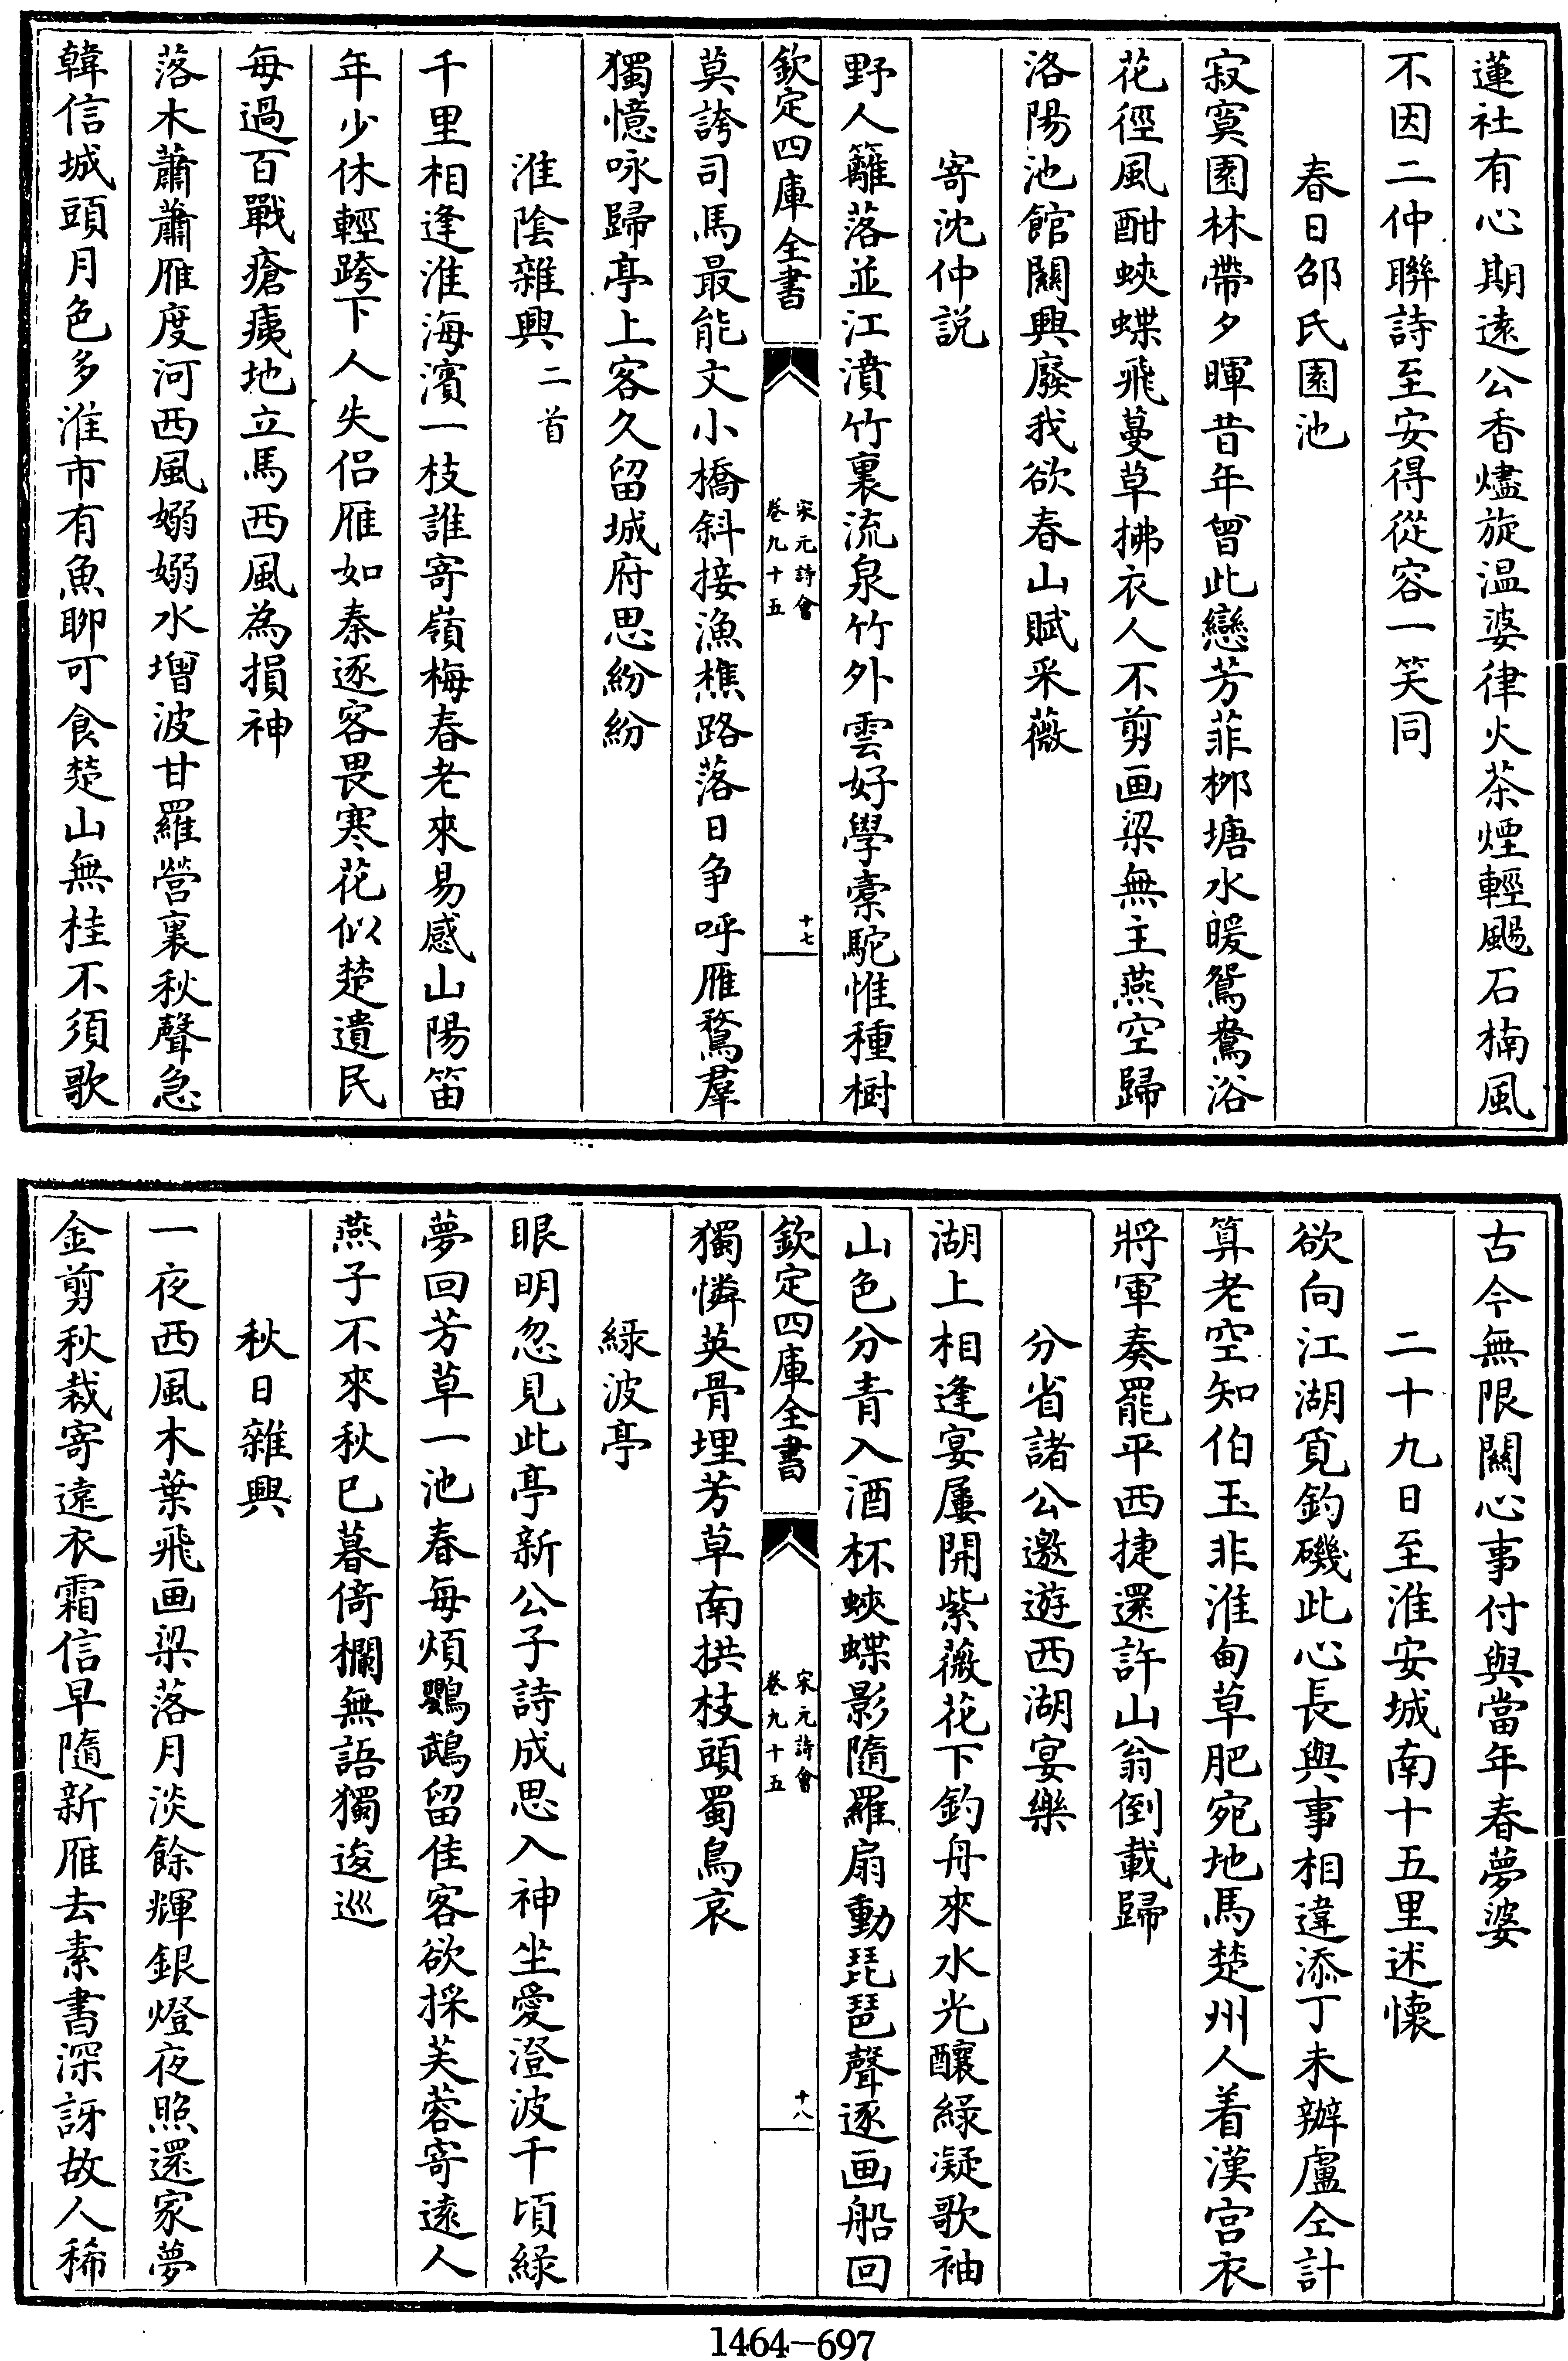 蓮社有心期遠公香燼旋温婆律火茶煙輕颺石楠風
不因二仲聯詩至安得從容一笑同
春日邵氏園池
寂寞園林帶夕暉昔年曾此戀芳菲桞塘水暖鴛鴦浴
花徑風酣蛺蝶飛蔓草拂衣人不剪画梁無主燕空歸
洛陽池館關興廢我欲春山賦采薇
寄沈仲説
野人籬落並江濆竹裏流泉竹外雲好學槖駝惟種樹
欽定四庫全書
宋元詩會
卷九十五
十七
莫誇司馬最能文小橋斜接漁樵路落日争呼雁鶩羣
獨憶咏歸亭上客久留城府思紛紛
淮陰雜興二首
千里相逢淮海濱一枝誰寄嶺梅春老來易感山陽笛
年少休輕跨下人失侣雁如秦逐客畏寒花似楚遺民
每過百戰瘡痍地立馬西風為損神
落木蕭蕭雁度河西風嫋嫋水增波甘羅營裏秋聲急
韓信城頭月色多淮市有魚聊可食楚山無桂不須歌
古今無限關心事付與當年春夢婆
二十九日至淮安城南十五里述懷
欲向江湖覓釣磯此心長與事相違添丁未辦盧仝計
算老空知伯玉非淮甸草肥宛地馬楚州人着漢宫衣
將軍奏罷平西捷還許山翁倒載歸
分省諸公邀遊西湖宴樂
湖上相逢宴屢開紫薇花下釣舟來水光釀緑凝歌袖
山色分青入酒杯蛺蝶影隨羅扇動琵琶聲逐画船回
欽定四庫全書
宋元詩會
卷九十五
十八
獨憐英骨埋芳草南拱枝頭蜀鳥哀
緑波亭
眼明忽見此亭新公子詩成思入神坐愛澄波千頃緑
夢回芳草一池春每煩鸚鵡留佳客欲採芙蓉寄遠人
燕子不來秋已暮倚欄無語獨逡巡
秋日雜興
一夜西風木葉飛画梁落月淡餘輝銀燈夜照還家夢
金剪秋裁寄遠衣霜信早隨新雁去素書深訝故人稀
1464-697